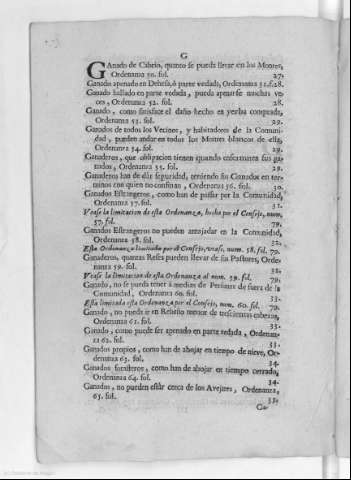 G
GAnado de Cabrio, quanto se pueda llevar en los Montes,
Ordenanza 50. fol. 27.
Ganado apenado en Dehesa, ò parte vedada, Ordenanza 51. f. 28.
Ganado hallado en parte vedada, pueda apenarse muchas ve-
ces, Ordenanza 52. fol. 28.
Ganado, como satisface el daño hecho en yerba comprada,
Ordenanza 53. fol. 29.
Ganados de todos los Vecinos, y habitadores de la Comuni-
dad, pueden andar en todos los Montes blancos de ella,
Ordenanza 54. fol. 29.
Ganaderos, que obligacion tienen quando enferman sus ga-
nados, Ordenanza 55. fol. 29.
Ganaderos han de dàr seguridad, teniendo su Ganados en ter-
minos con quien no confinan, Ordenanza 56. fol. 30.
Ganados Estrangeros, como han de passar por la Comunidad,
Ordenanza 57. fol. 31.
Vease la limitacion de esta Ordenanza, hecha por el Consejo, num.
57. fol. 79.
Ganados Estrangeros no pueden amajadar en la Comunidad,
Ordenanza 58. fol. 32.
Esta Ordenanza limitada por el Consejo, vease, num. 58. fol. 79.
Ganaderos, quantas Reses pueden llevar de sus Pastores, Orde-
nanza 59. fol. 32.
Vease la limitacion de esta Ordenanza al num. 59. fol. 79.
Ganado, no se pueda tener à medias de Personas de fuera de la
Comunidad, Ordenanza 60. fol. 33.
Esta limitada esta Ordenanza por el Consejo, num. 60. fol. 79.
Ganado, no pueda ir en Rebaño menor de trescientas cabezas,
Ordenanza 61. fol. 33.
Ganado, como puede ser apenado en parte vedada, Ordenan-
za 62. fol. 33.
Ganados propios, como han de abojar en tiempo de nieve, Or-
denanza 63. fol. 34.
Ganados forasteros, como han de abojar en tiempo cerrado,
Ordenanza 64. fol. 34.
Ganados, no pueden estàr cerca de los Avejares, Ordenanza,
65. fol. 35.
Ga-